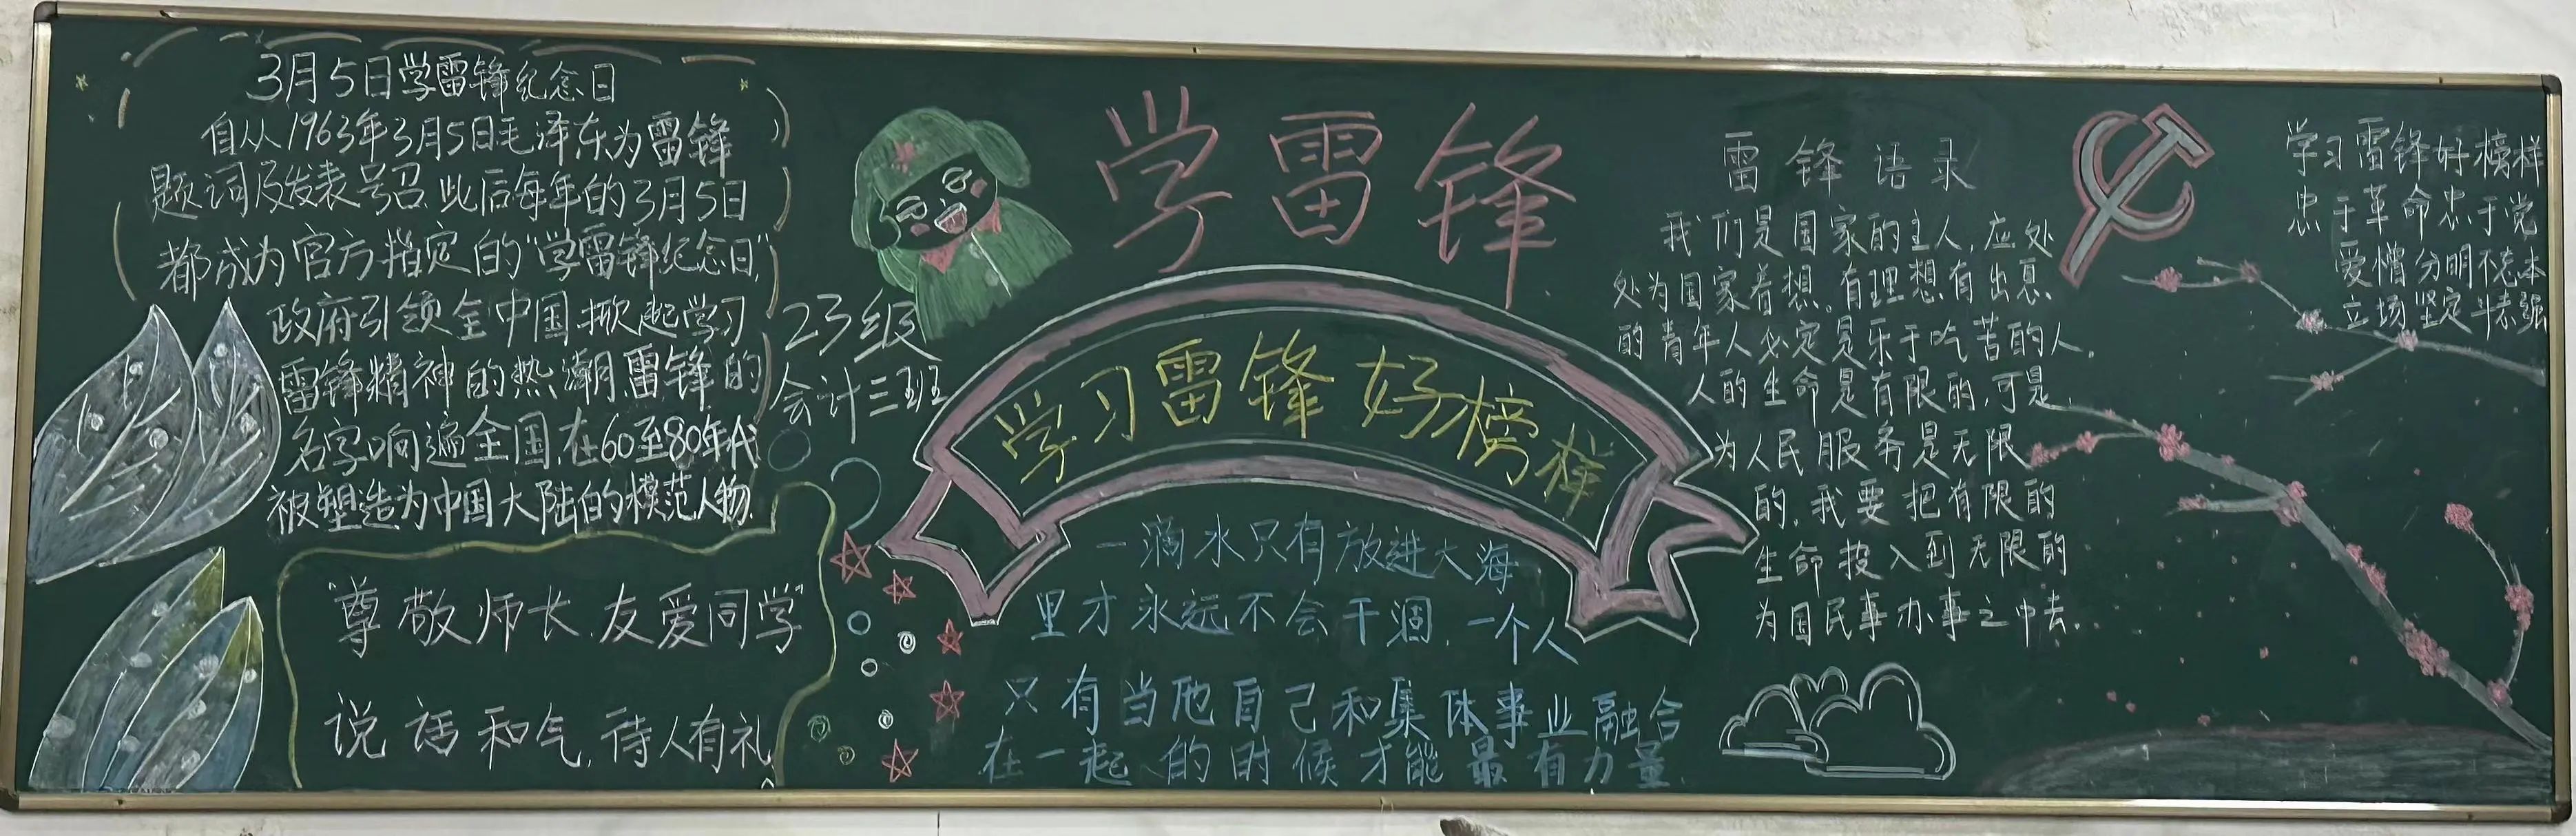 3月5日学雷锋纪念日
自从1963年3月5日毛泽东为雷锋
题词及发表号召.此后每年的3月5日
都成为官方指定的"学雷锋纪念日",
政府引领全中国掀起学习
雷锋精神的热潮.雷锋的
名字响遍全国,在60至80年代
被塑造为中国大陆的模范人物.
"尊敬师长.友爱同学"
说话和气,待人有礼
23级
会计三班
学雷锋
学习雷锋好榜样
一滴水只有放进大海
里才永远不会干涸,一个人
只有当他自己和集体事业融合
在一起的时候才能最有力量.
雷锋语录
我们是国家的主人,应处
处为国家着想。有理想有出息
的青年人必定是乐于吃苦的人.
人的生命是有限的,可是
为人民服务是无限
的,我要把有限的
生命投入到无限的
为国民事办事之中去.
学习雷锋好榜样
忠于革命忠于党
爱憎分明不忘本
立场坚定斗志强